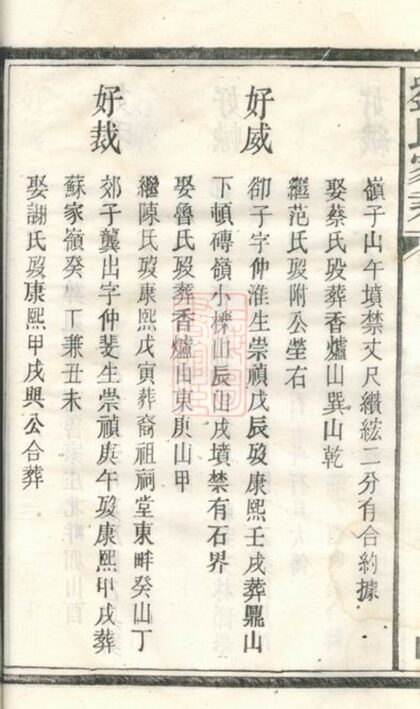 嶺子山午墳禁丈尺纘紘二分有合約據
娶蔡氏歿葬香爐山巽山乾
繼范氏歿附公塋右
好威
卻子字仲淮生崇禎戊辰歿康熙壬戌葬鼎山
下頓磚嶺小櫟山辰山戌墳禁有石界
娶魯氏歿葬香爐山東庚山甲
繼陳氏歿康熙戊寅葬裔祖祠堂東畔癸山丁
好裁
郊子龔出字仲斐生崇禎庚午歿康熙甲戌葬
蘇家嶺癸丁兼丑未
娶謝氏歿康熙甲戌與公合葬